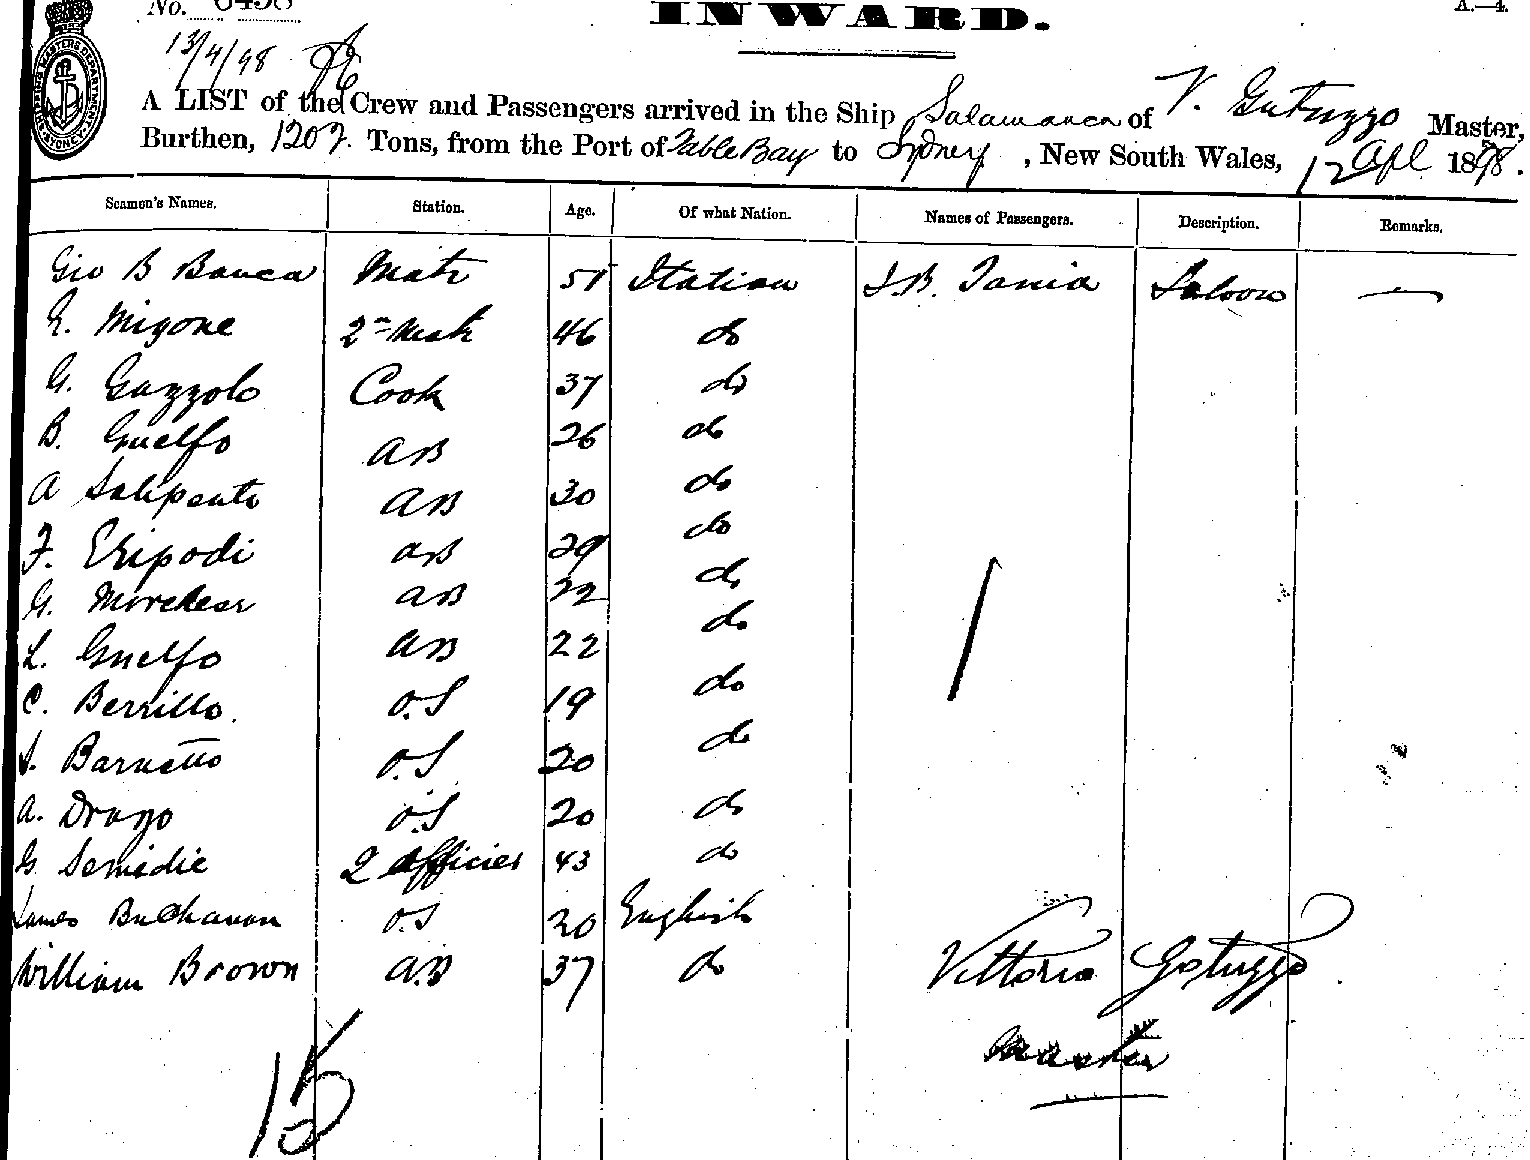 No. 6458
INWARD.
A.—4.
13/4/98
A LIST of the Crew and Passengers arrived in the Ship Salamanca of V. Gotuzzo Master,
Burthen, 1207 Tons, from the Port of Table Bay to Sydney, New South Wales, 12 Apl 1898.
Seamen's Names. Station. Age. Of what Nation. Names of Passengers. Description. Remarks.
Gio B Banca Mate 51 Italian J.B. Tania Saloon —
E. Migone 2nd Mate 46 do
G. Gazzolo Cook 37 do
B. Guelfo AB 26 do
A AB 30 do
F. AB 29 do
G. AB 22 do
L. Guelfo AB 22 do
C. Berrillo. O.S 19 do
S. Barnetto O.S 20 do
A. Drago O.S 20 do
G 2 Officier 43 do
James Buchanan O.S 20 English
William Brown A.B 37 do
Vittorio Gotuzzo
Master
15